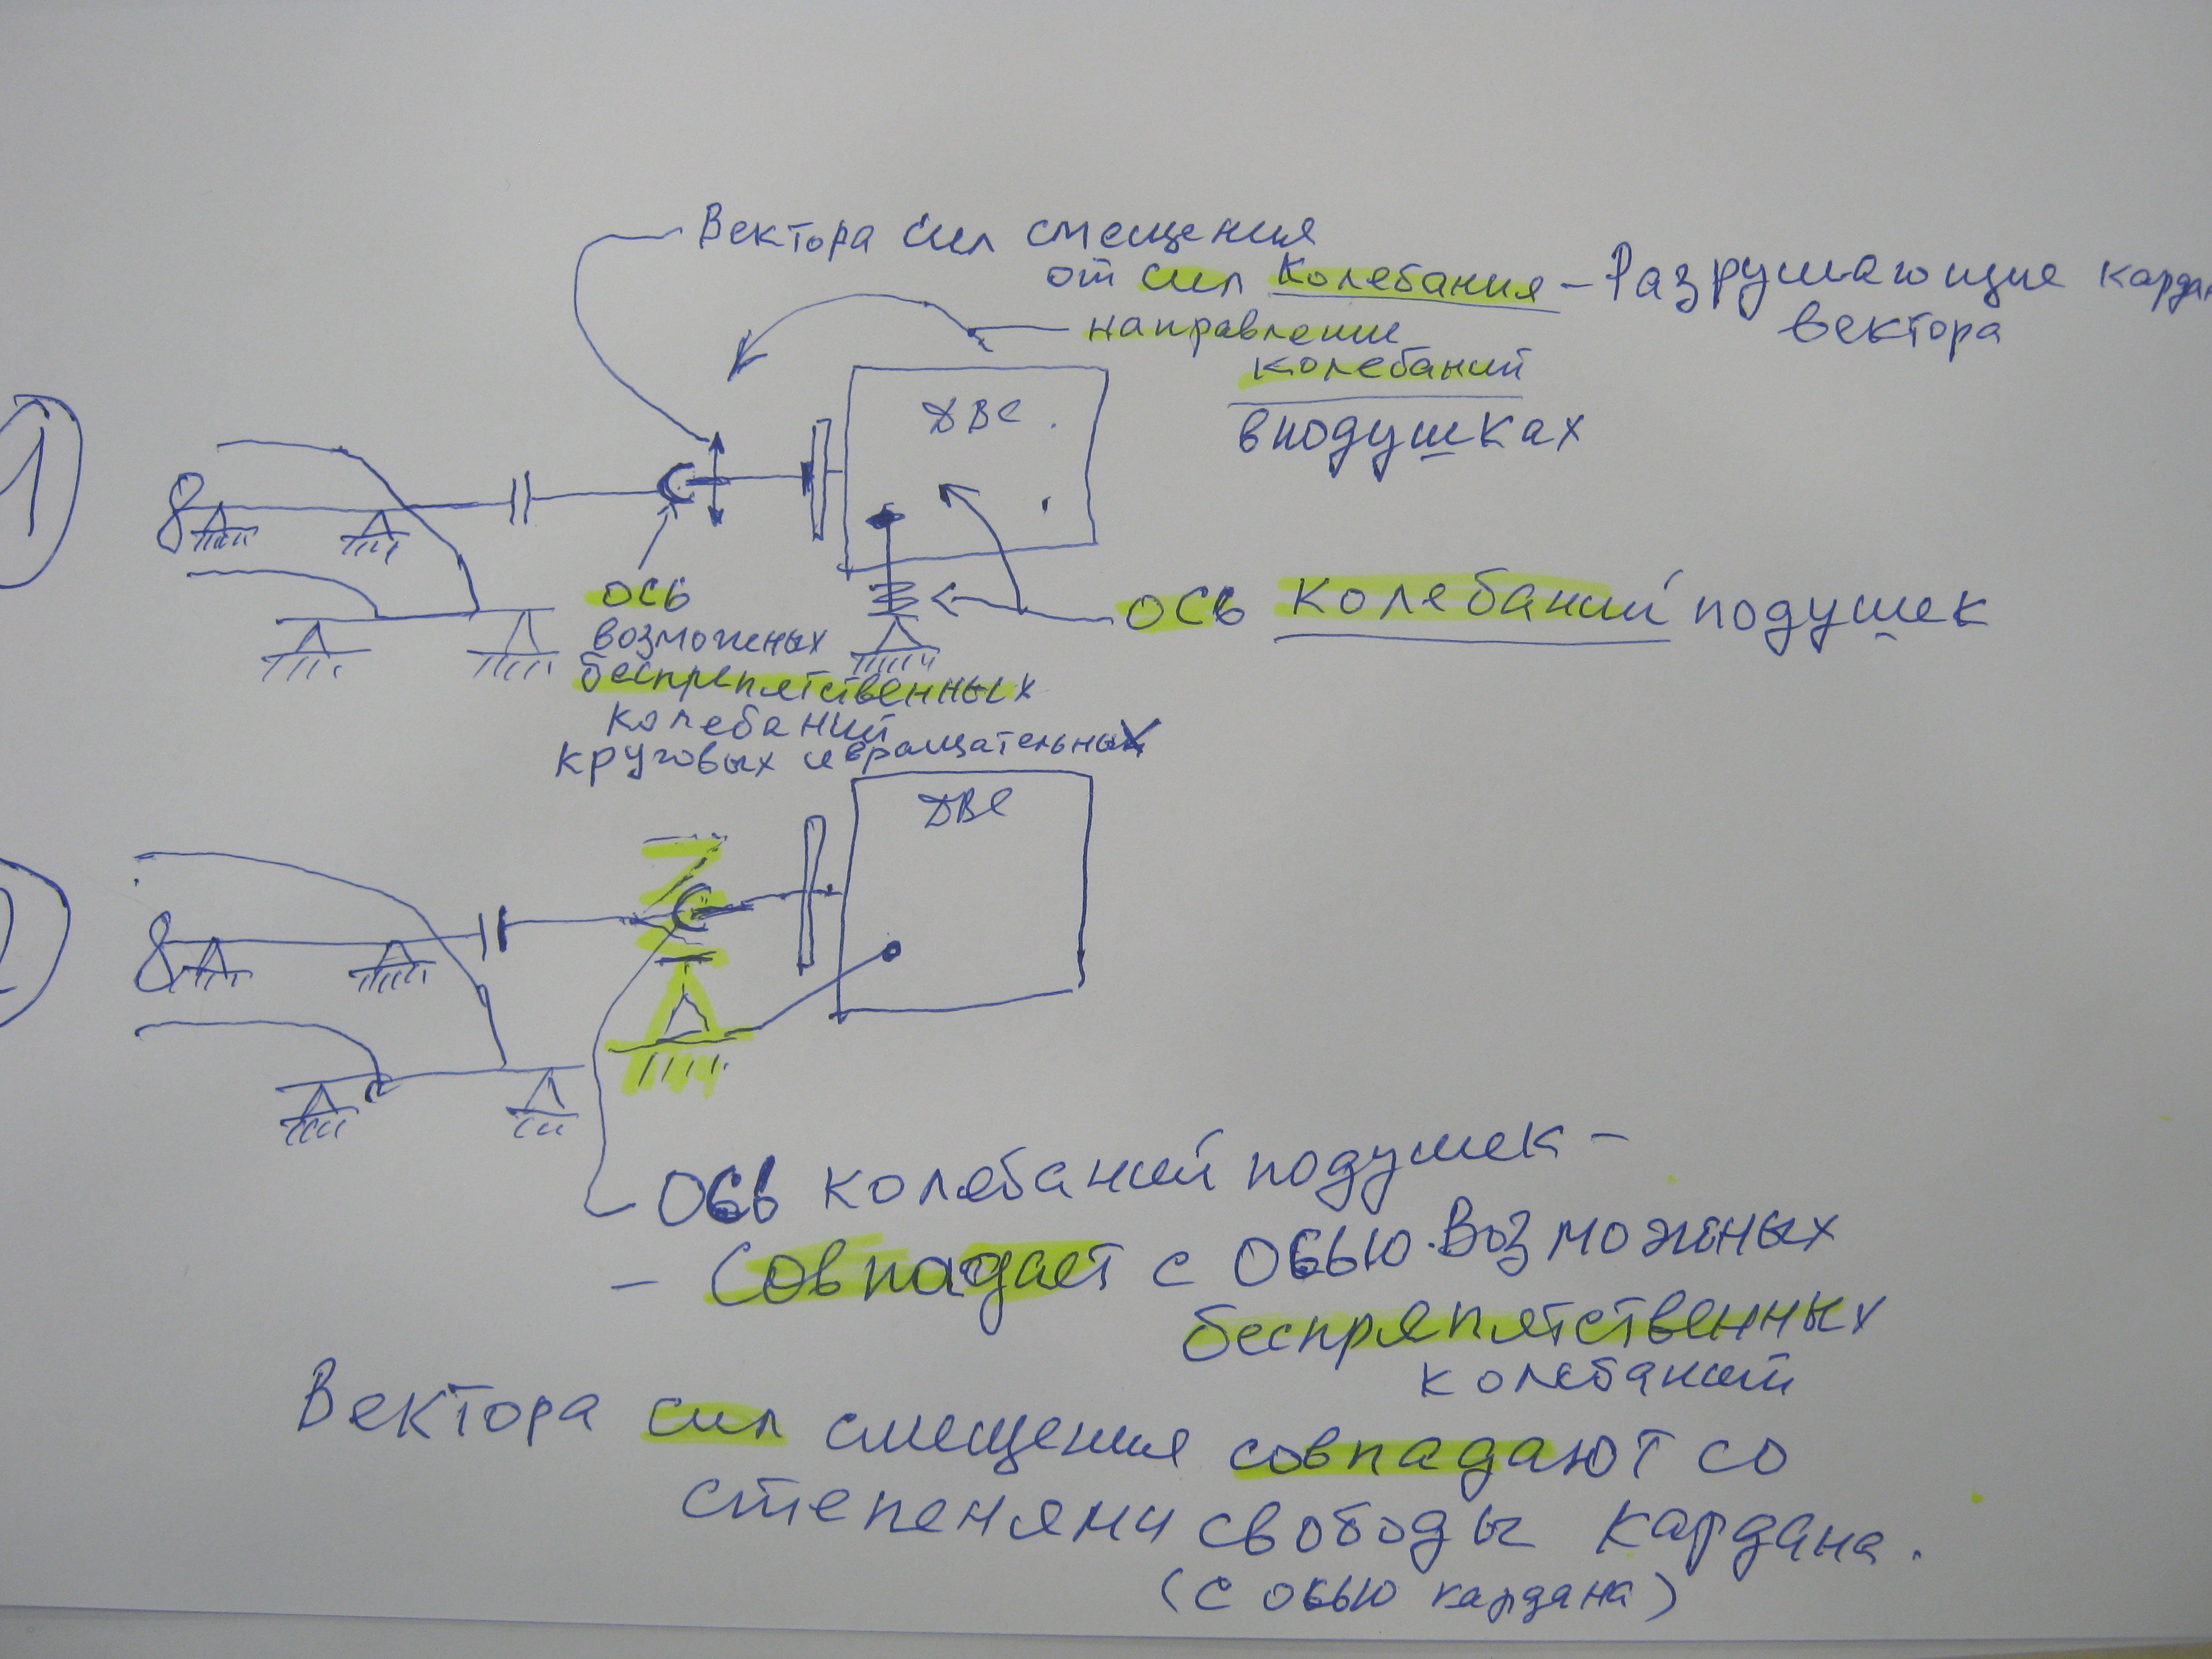 Вектора сил смещения
от сил колебания – Разрушающие кардан
вектора
направление
колебаний
в подушках
1
ДВС
8
ось
возможных
беспрепятственных
колебаний
круговых и вращательных
ось колебаний подушек
2
ДВС
8
Ось колебаний подушек –
– Совпадает с осью возможных
беспряпятственных
колебаний
Вектора сил смещения совпадают со
степенями свободы кардана.
(с осью кардана)